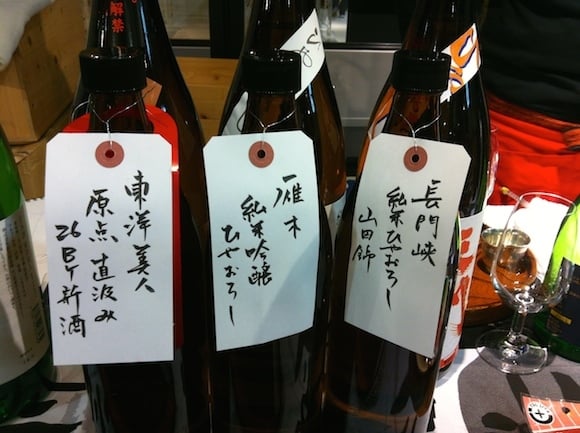 解禁
東洋美人
原点 直汲み
26BY新酒
雁木
純米吟醸
ひやおろし
長門峡
純米ひやおろし
山田錦